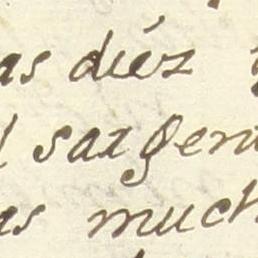 as diéz
l sargen
as much